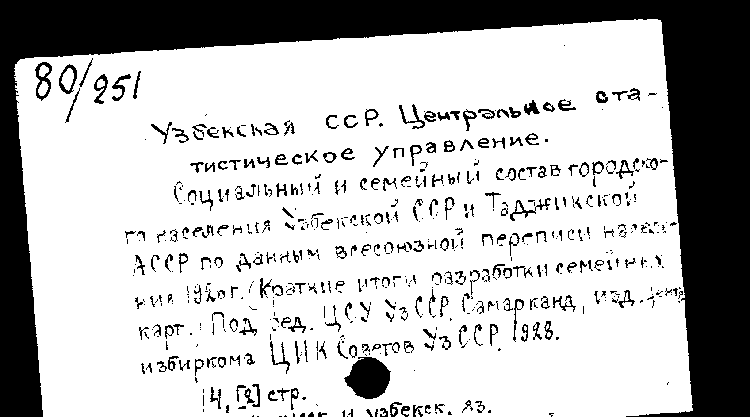 80/251
Узбекская ССР. Центральное ста-
тистическое управление.
Социальный и семейный состав городско-
го населения Узбекской ССР и Таджикской
АССР по данным всесоюзной переписи населе-
ния 1926 г. (Краткие итоги разработки семейных
карт.) Под ред. ЦСУ УзССР. Самарканд, изд. Центр
избиркома ЦИК Советов УзССР, 1928.
14, [2] стр.
и узбекск. яз.